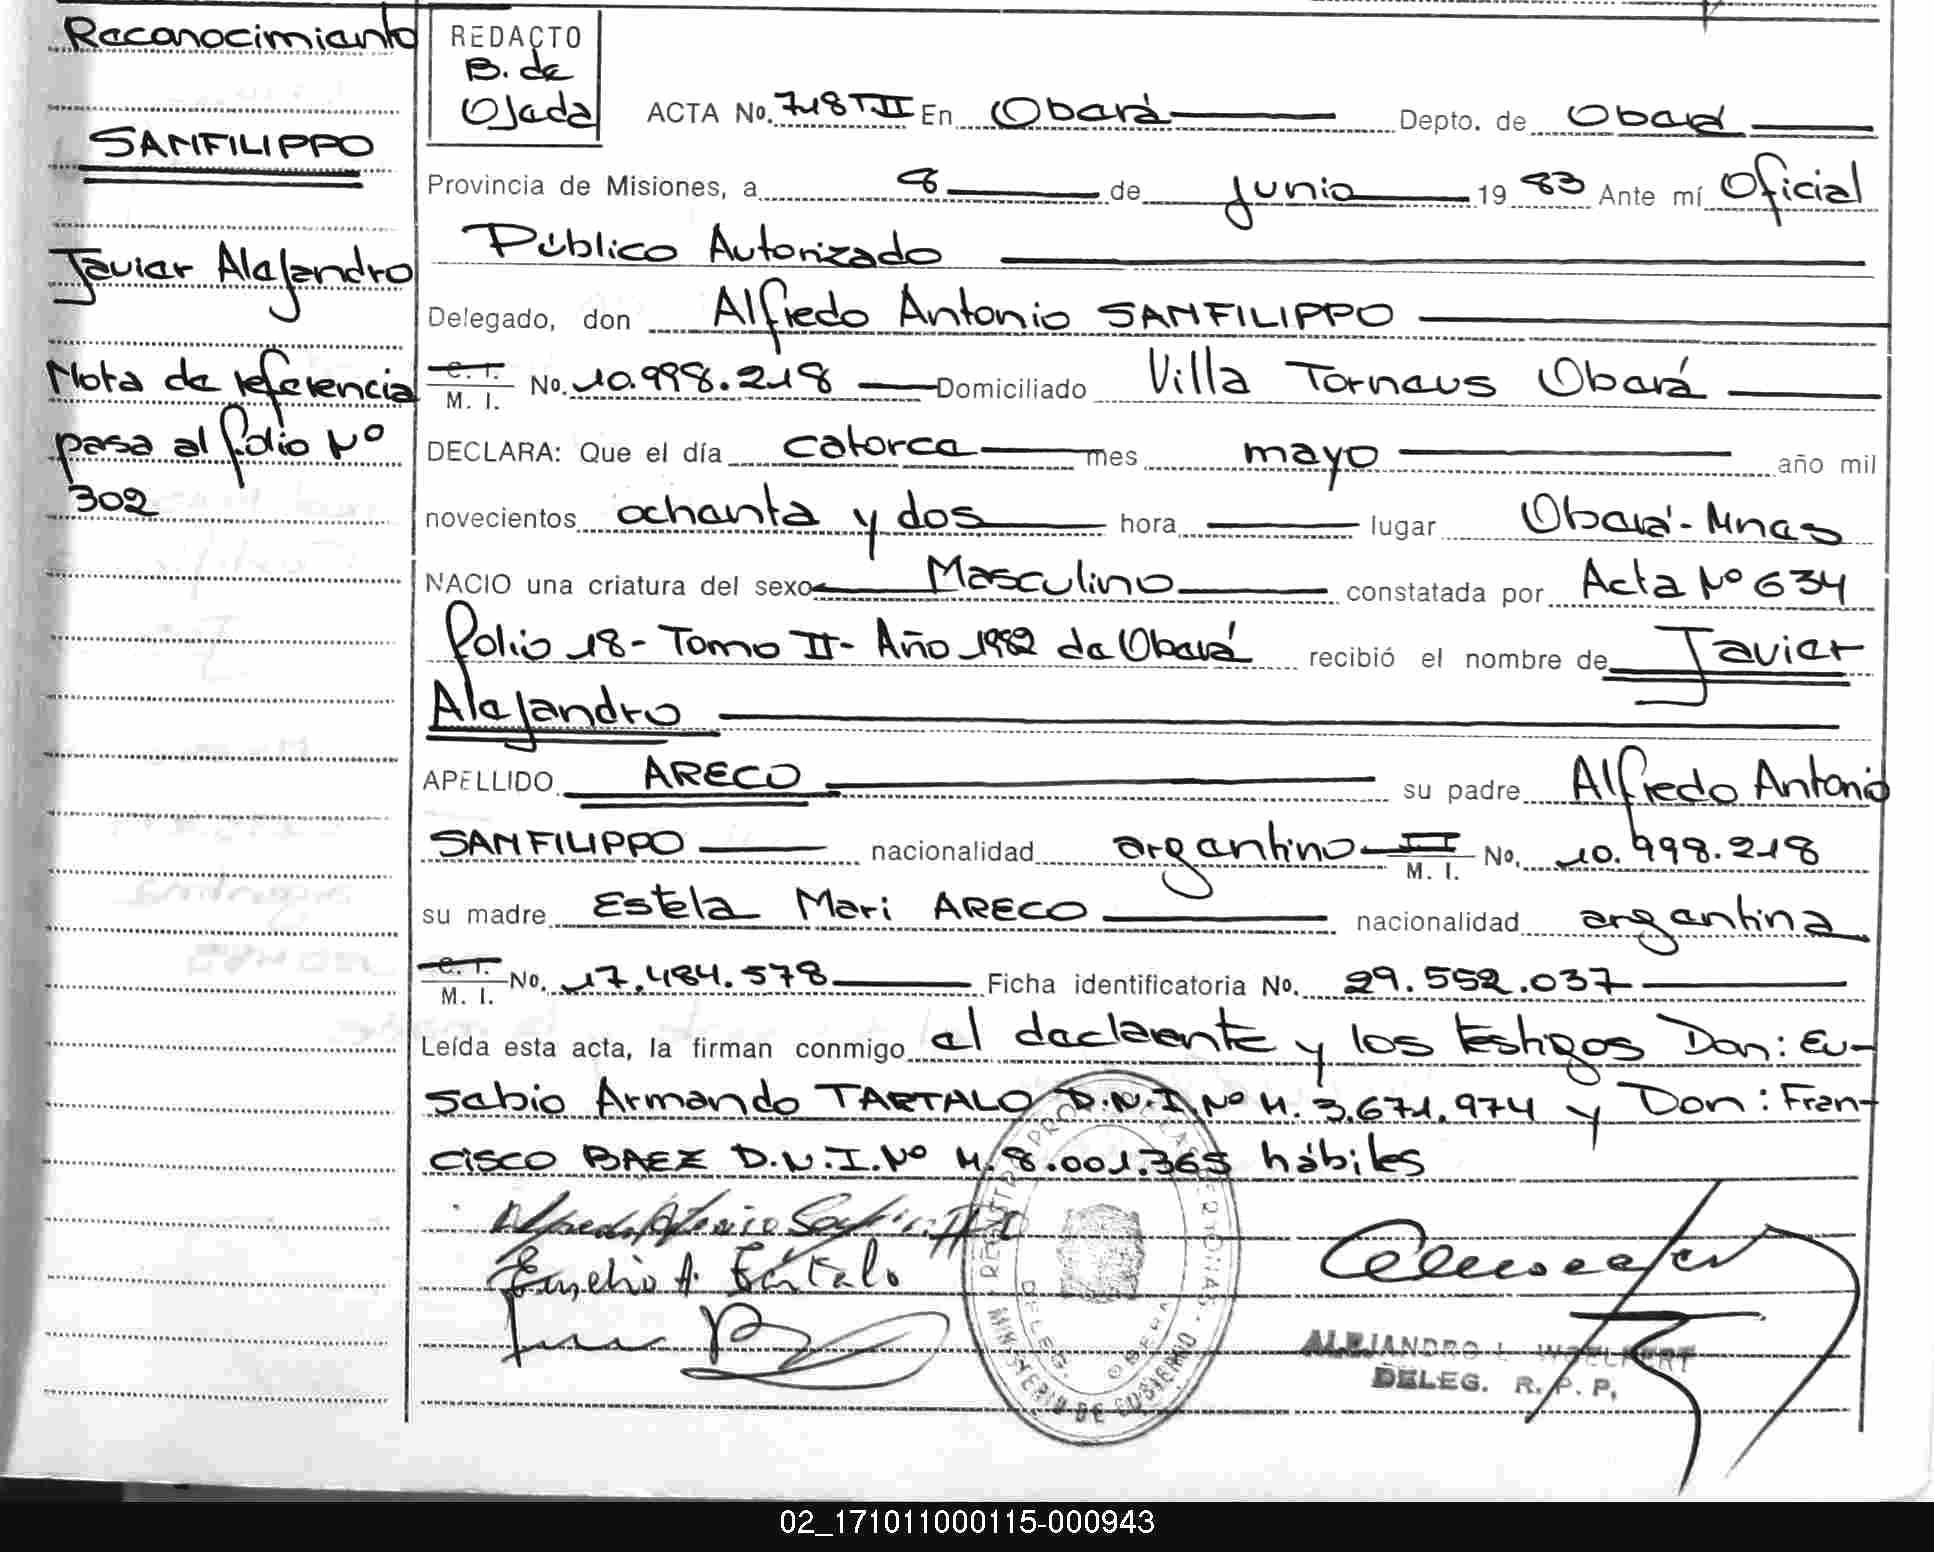 Reconocimiento
SANFILIPPO
Javier Alejandro
Nota de referencia
pasa al folio Nº
302
REDACTO
B. de
Ojeda
ACTA No. 718 T.II En Oberá Depto. de Oberá
Provincia de Misiones, a 8 de junio 19 83 Ante mí Oficial
Público Autorizado
Delegado, don Alfredo Antonio SANFILIPPO
C. I.
M. I. No. 10.998.218 Domiciliado Villa Torneus Oberá
DECLARA: Que el día catorce mes mayo año mil
novecientos ochenta y dos hora lugar Oberá-Mnes
NACIO una criatura del sexo Masculino constatada por Acta Nº 634
folio 18- Tomo II- Año 1982 de Oberá recibió el nombre de Javier
Alejandro
APELLIDO ARECO su padre Alfredo Antonio
SANFILIPPO nacionalidad argentino M. I. No. 10.998.218
su madre Estela Mari ARECO nacionalidad argentina
C. I.
M. I. No. 17.484.578 Ficha identificatoria No. 29.552.037
Leída esta acta, la firman conmigo el declarente y los testigos Don: Eu-
sebio Armando TARTALO D.N.I. Nº M. 3.671.974 y Don: Fran-
cisco BAEZ D.N.I. Nº M. 8.001.365 hábiles
Eusebio A. Tártalo
REGISTRO PROV. DE LAS PERSONAS
DELEG. OBERA
MINISTERIO DE GOBIERNO
ALEJANDRO L. WOELFERT
DELEG. R. P. P.
02_171011000115-000943